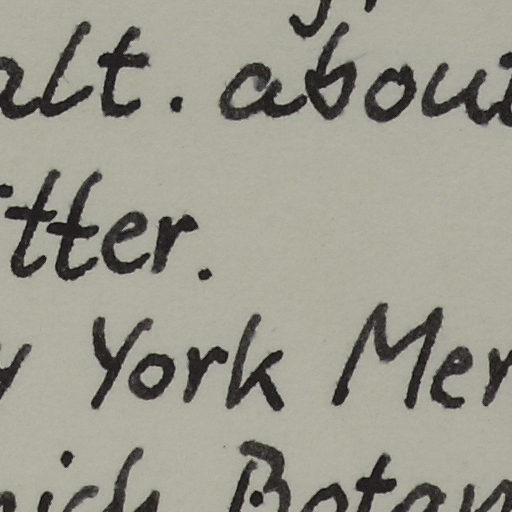 alt. about
itter.
y York Mer
nich Botan